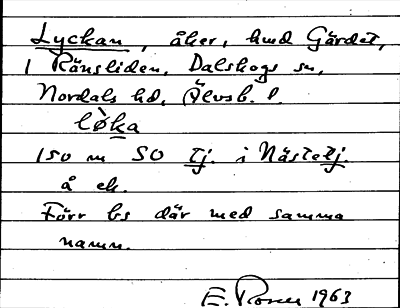 Lyckan, åker, hmd Gärdet,
1 Ränsliden, Dalskogs sn,
Nordals hd, Älvsb. l.
lø̀ka
150 m SO tj. i Nästetj.
å ek.
Förr bs där med samma
namn.
E. Rosen 1963